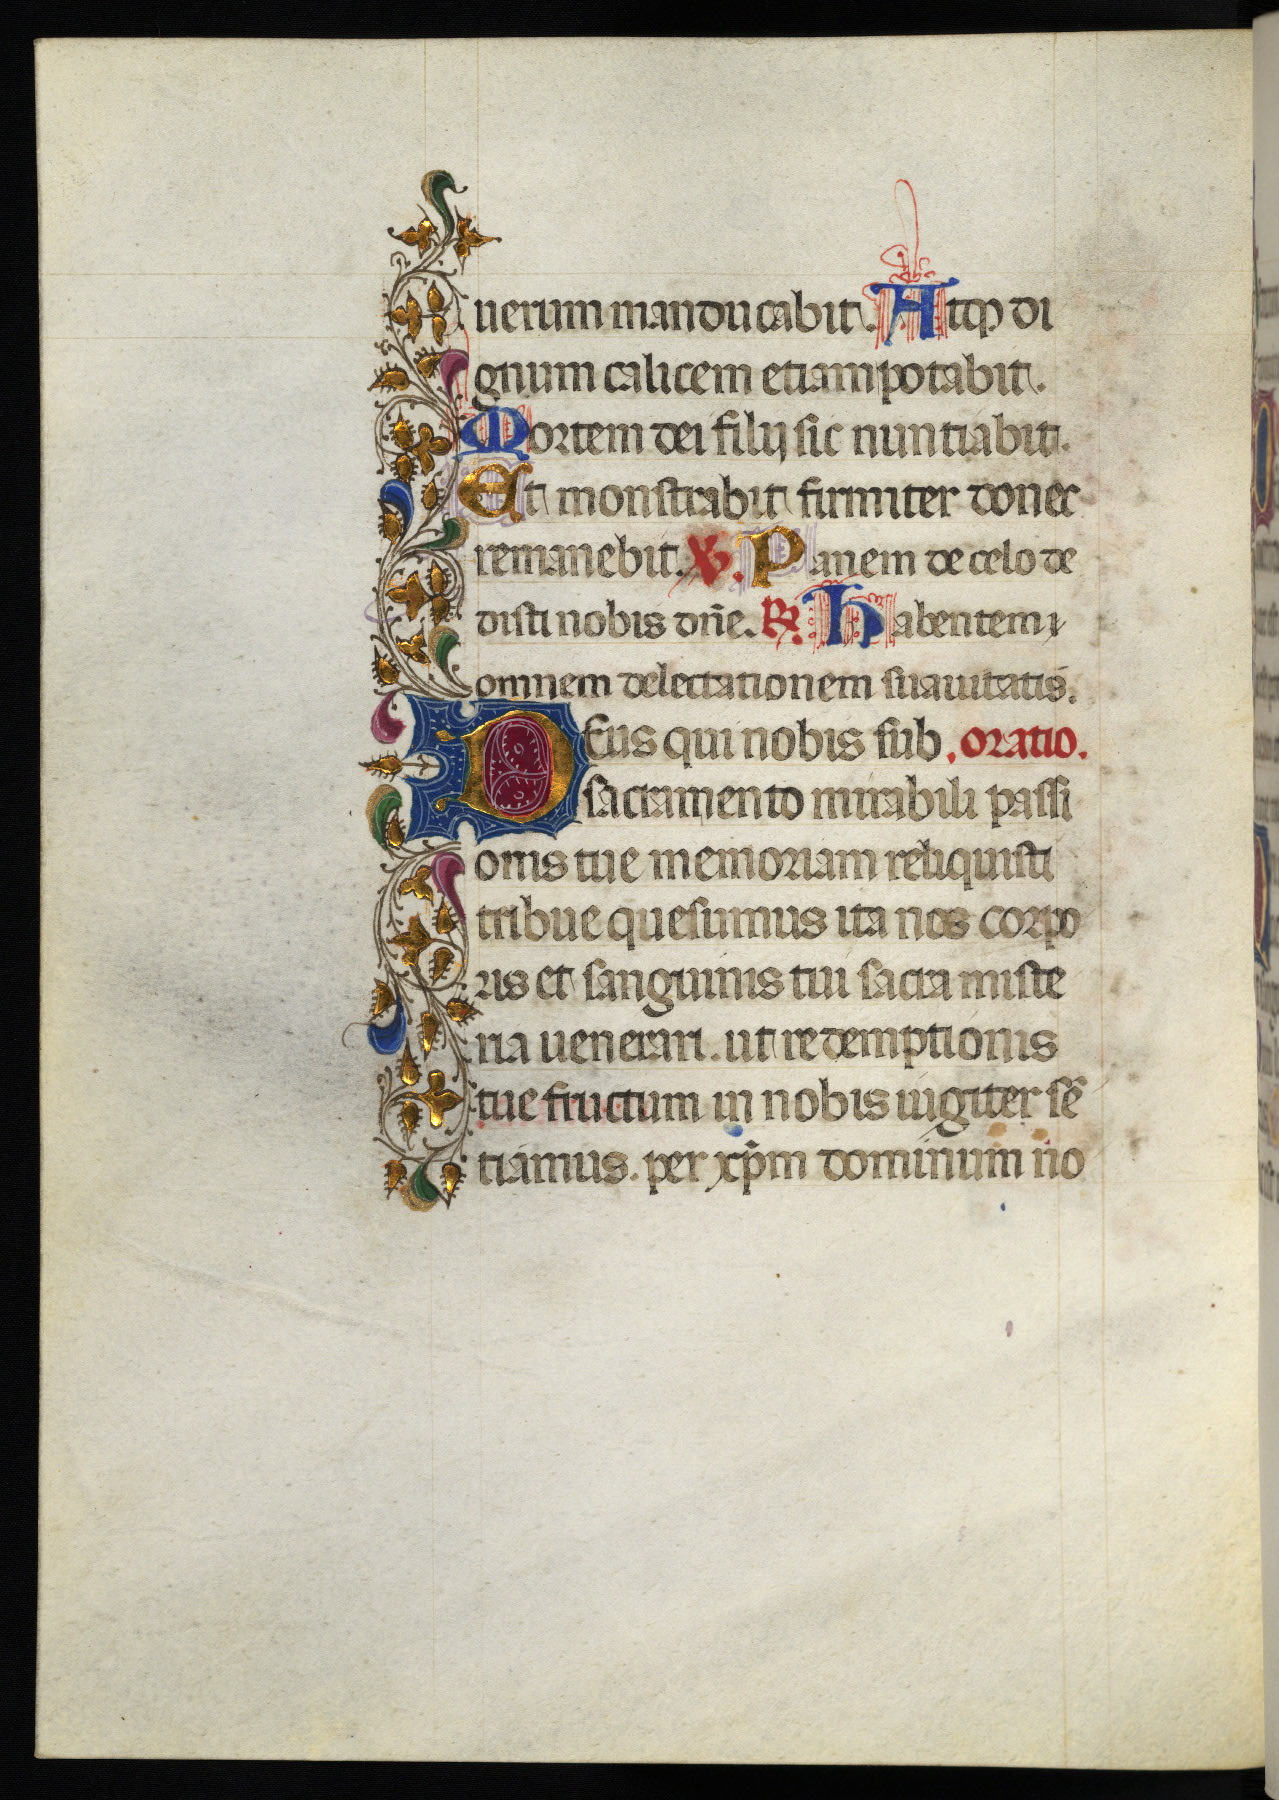 uerum manducabit. Atqꝫ di
gnum calicem etiam potabit.
Mortem dei filij sic nuntiabit.
Et monstrabit firmiter donec
remanebit. ℣. Panem de celo de
disti nobis dn̄e. ℟. Habentem
omnem delectationem suauitatis.
Deus qui nobis sub .oratio.
sacramento mirabili passi
onis tue memoriam reliquisti
tribue quesumus ita nos corpo
ris et sanguinis tui sacra miste
ria uenerari. ut redemptionis
tue fructum in nobis iugiter sē
tiamus. per xp̄m dominum no